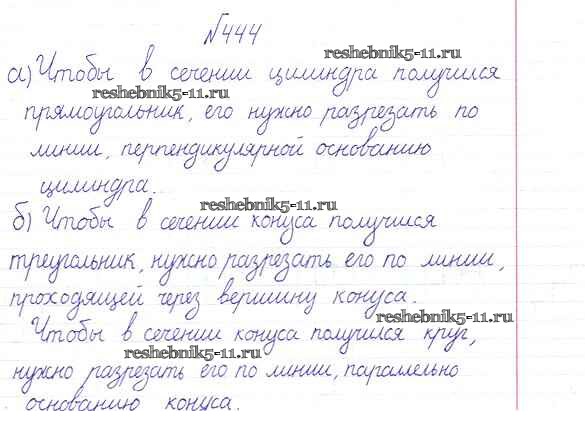 №444
reshebnik5-11.ru
а) Чтобы в сечении цилиндра получился
reshebnik5-11.ru
прямоугольник, его нужно разрезать по
линии, перпендикулярной основанию
цилиндра.
reshebnik5-11.ru
б) Чтобы в сечении конуса получился
треугольник, нужно разрезать его по линии,
проходящей через вершину конуса.
reshebnik5-11.ru
Чтобы в сечении конуса получился круг,
reshebnik5-11.ru
нужно разрезать его по линии, параллельно
основанию конуса.